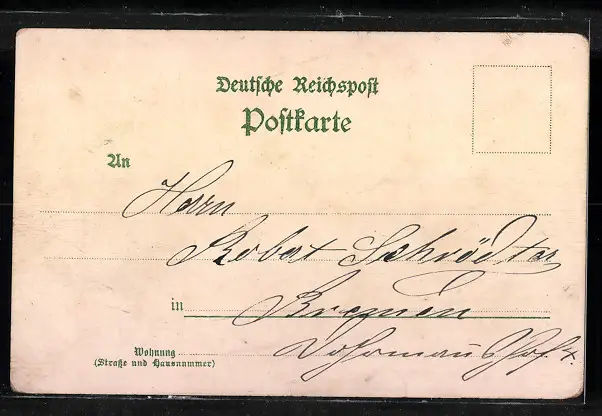 Deutsche Reichspost
Postkarte
An
Herrn
Robert Schröder
in Bremen
Wohnung
(Straße und Hausnummer)